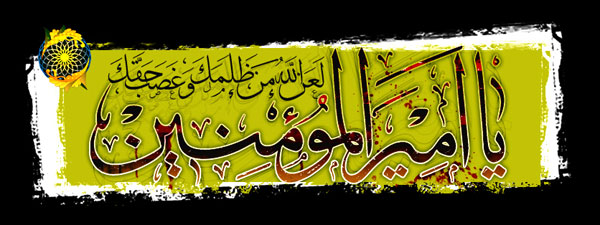 لعن الله من ظلمك و غصب حقك
يا أمير المؤمنين